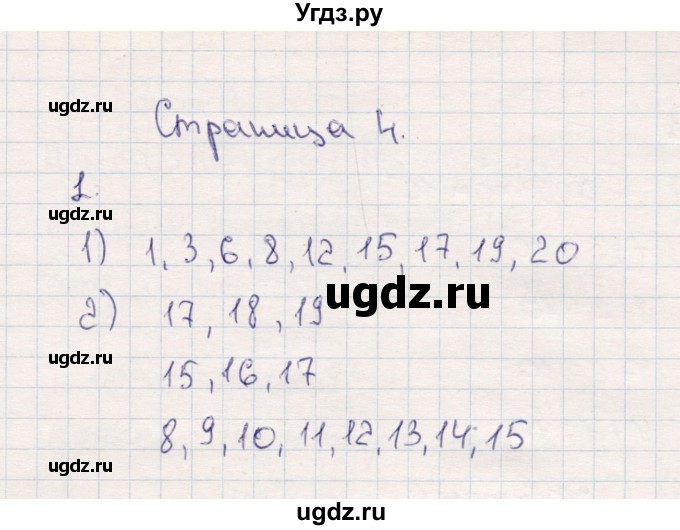 Угдз.ру
ugdz.ru
Страница 4.
1.
ugdz.ru
1) 1, 3, 6, 8, 12, 15, 17, 19, 20
ugdz.ru
ugdz.ru
2) 17, 18, 19
15, 16, 17
ugdz.ru
8, 9, 10, 11, 12, 13, 14, 15
ugdz.ru
ugdz.ru